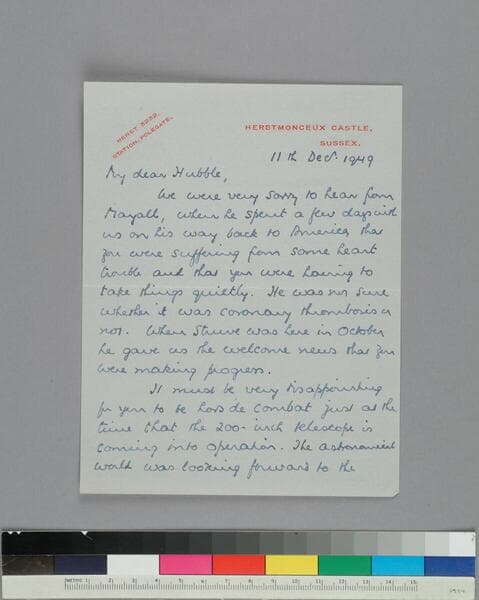 HERST 3232.
STATION, POLEGATE.
HERSTMONCEUX CASTLE,
SUSSEX.
11th Decr. 1949
My dear Hubble,
We were very sorry to hear from
Mayall, when he spent a few days with
us on his way back to America, that
you were suffering from some heart
trouble and that you were having to
take things quietly. He was not sure
whether it was coronary thrombosis or
not. When Struve was here in October
he gave us the welcome news that you
were making progress.
It must be very disappointing
for you to be hors de combat just at the
time that the 200-inch telescope is
coming into operation. The astronomical
world was looking forward to the
METRIC 1 2 3 4 5 6 7 8 9 10 11 12 13 14 15